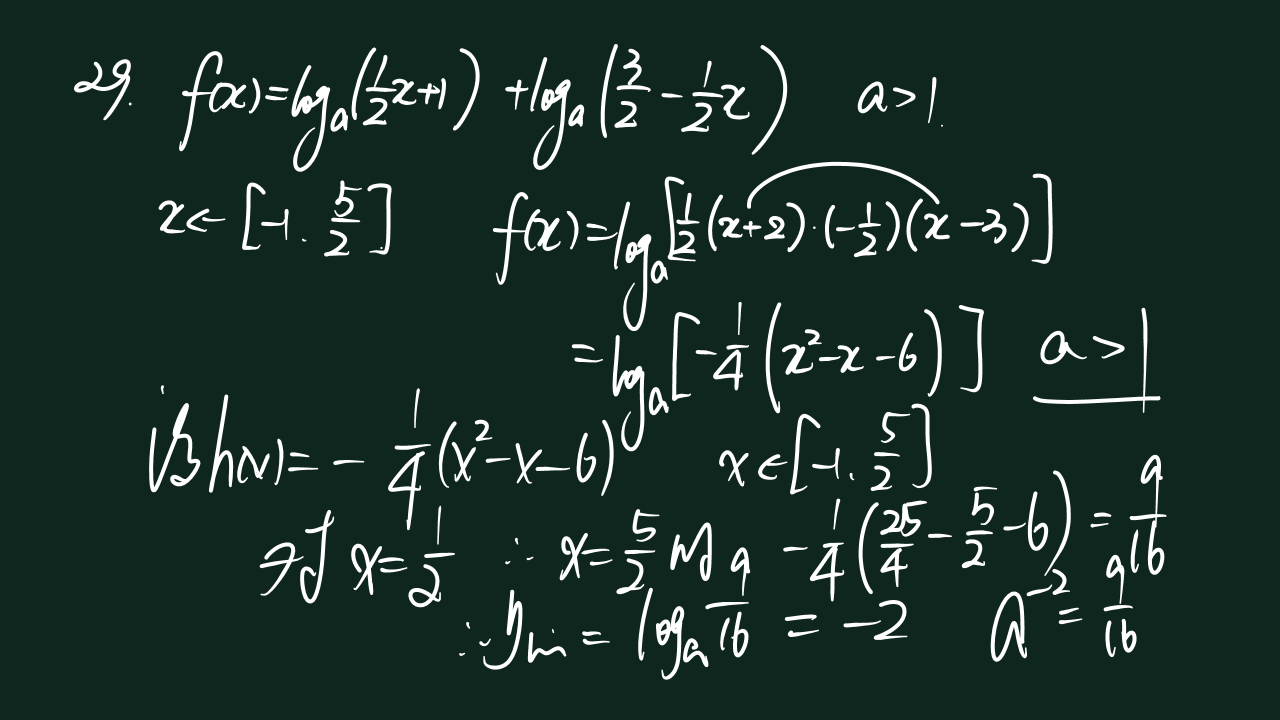 29. f(x)=log_a(1/2x+1)+log_a(3/2-1/2x) a>1.
x∈[-1.5/2] f(x)=log_a[1/2(x+2)·(-1/2)(x-3)]
=log_a[-1/4(x²-x-6)] a>1
设h(x)=-1/4(x²-x-6) x∈[-1.5/2]
对 x=1/2 ∴x=5/2时 -1/4(25/4-5/2-6)=9/16
∴y_min=log_a 9/16=-2 a⁻²=9/16